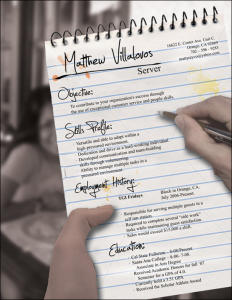 Matthew Villalovos
16622 E. Center Ave. Unit C.
Orange, CA
Server
Objective:
To contribute to your organization's success through
the use of exceptional customer service and people skills.
Skills Profile:
Versatile and able to adapt within a
high-pressured environment.
Dedication and drive as a hard-working individual
Developed communication and team-building
skills through volunteering.
Ability to manage multiple tasks in a
pressured environment
Employment History:
TGI Fridays
Block in Orange, CA.
July 2006-Present
Responsible for serving multiple guests in a
self run station.
Required to complete several "side work"
tasks while maintaining guest satisfaction.
Sales would exceed $15,000 a shift.
Education:
Cal State Fullerton - 6.08-Present.
Santa Ana College - 6.06- 7.08.
Associate in Arts Degree
Received Academic Honors for fall '07
Semester for a GPA of 4.0.
Currently hold a GPA
Received the Scholar Athlete Award